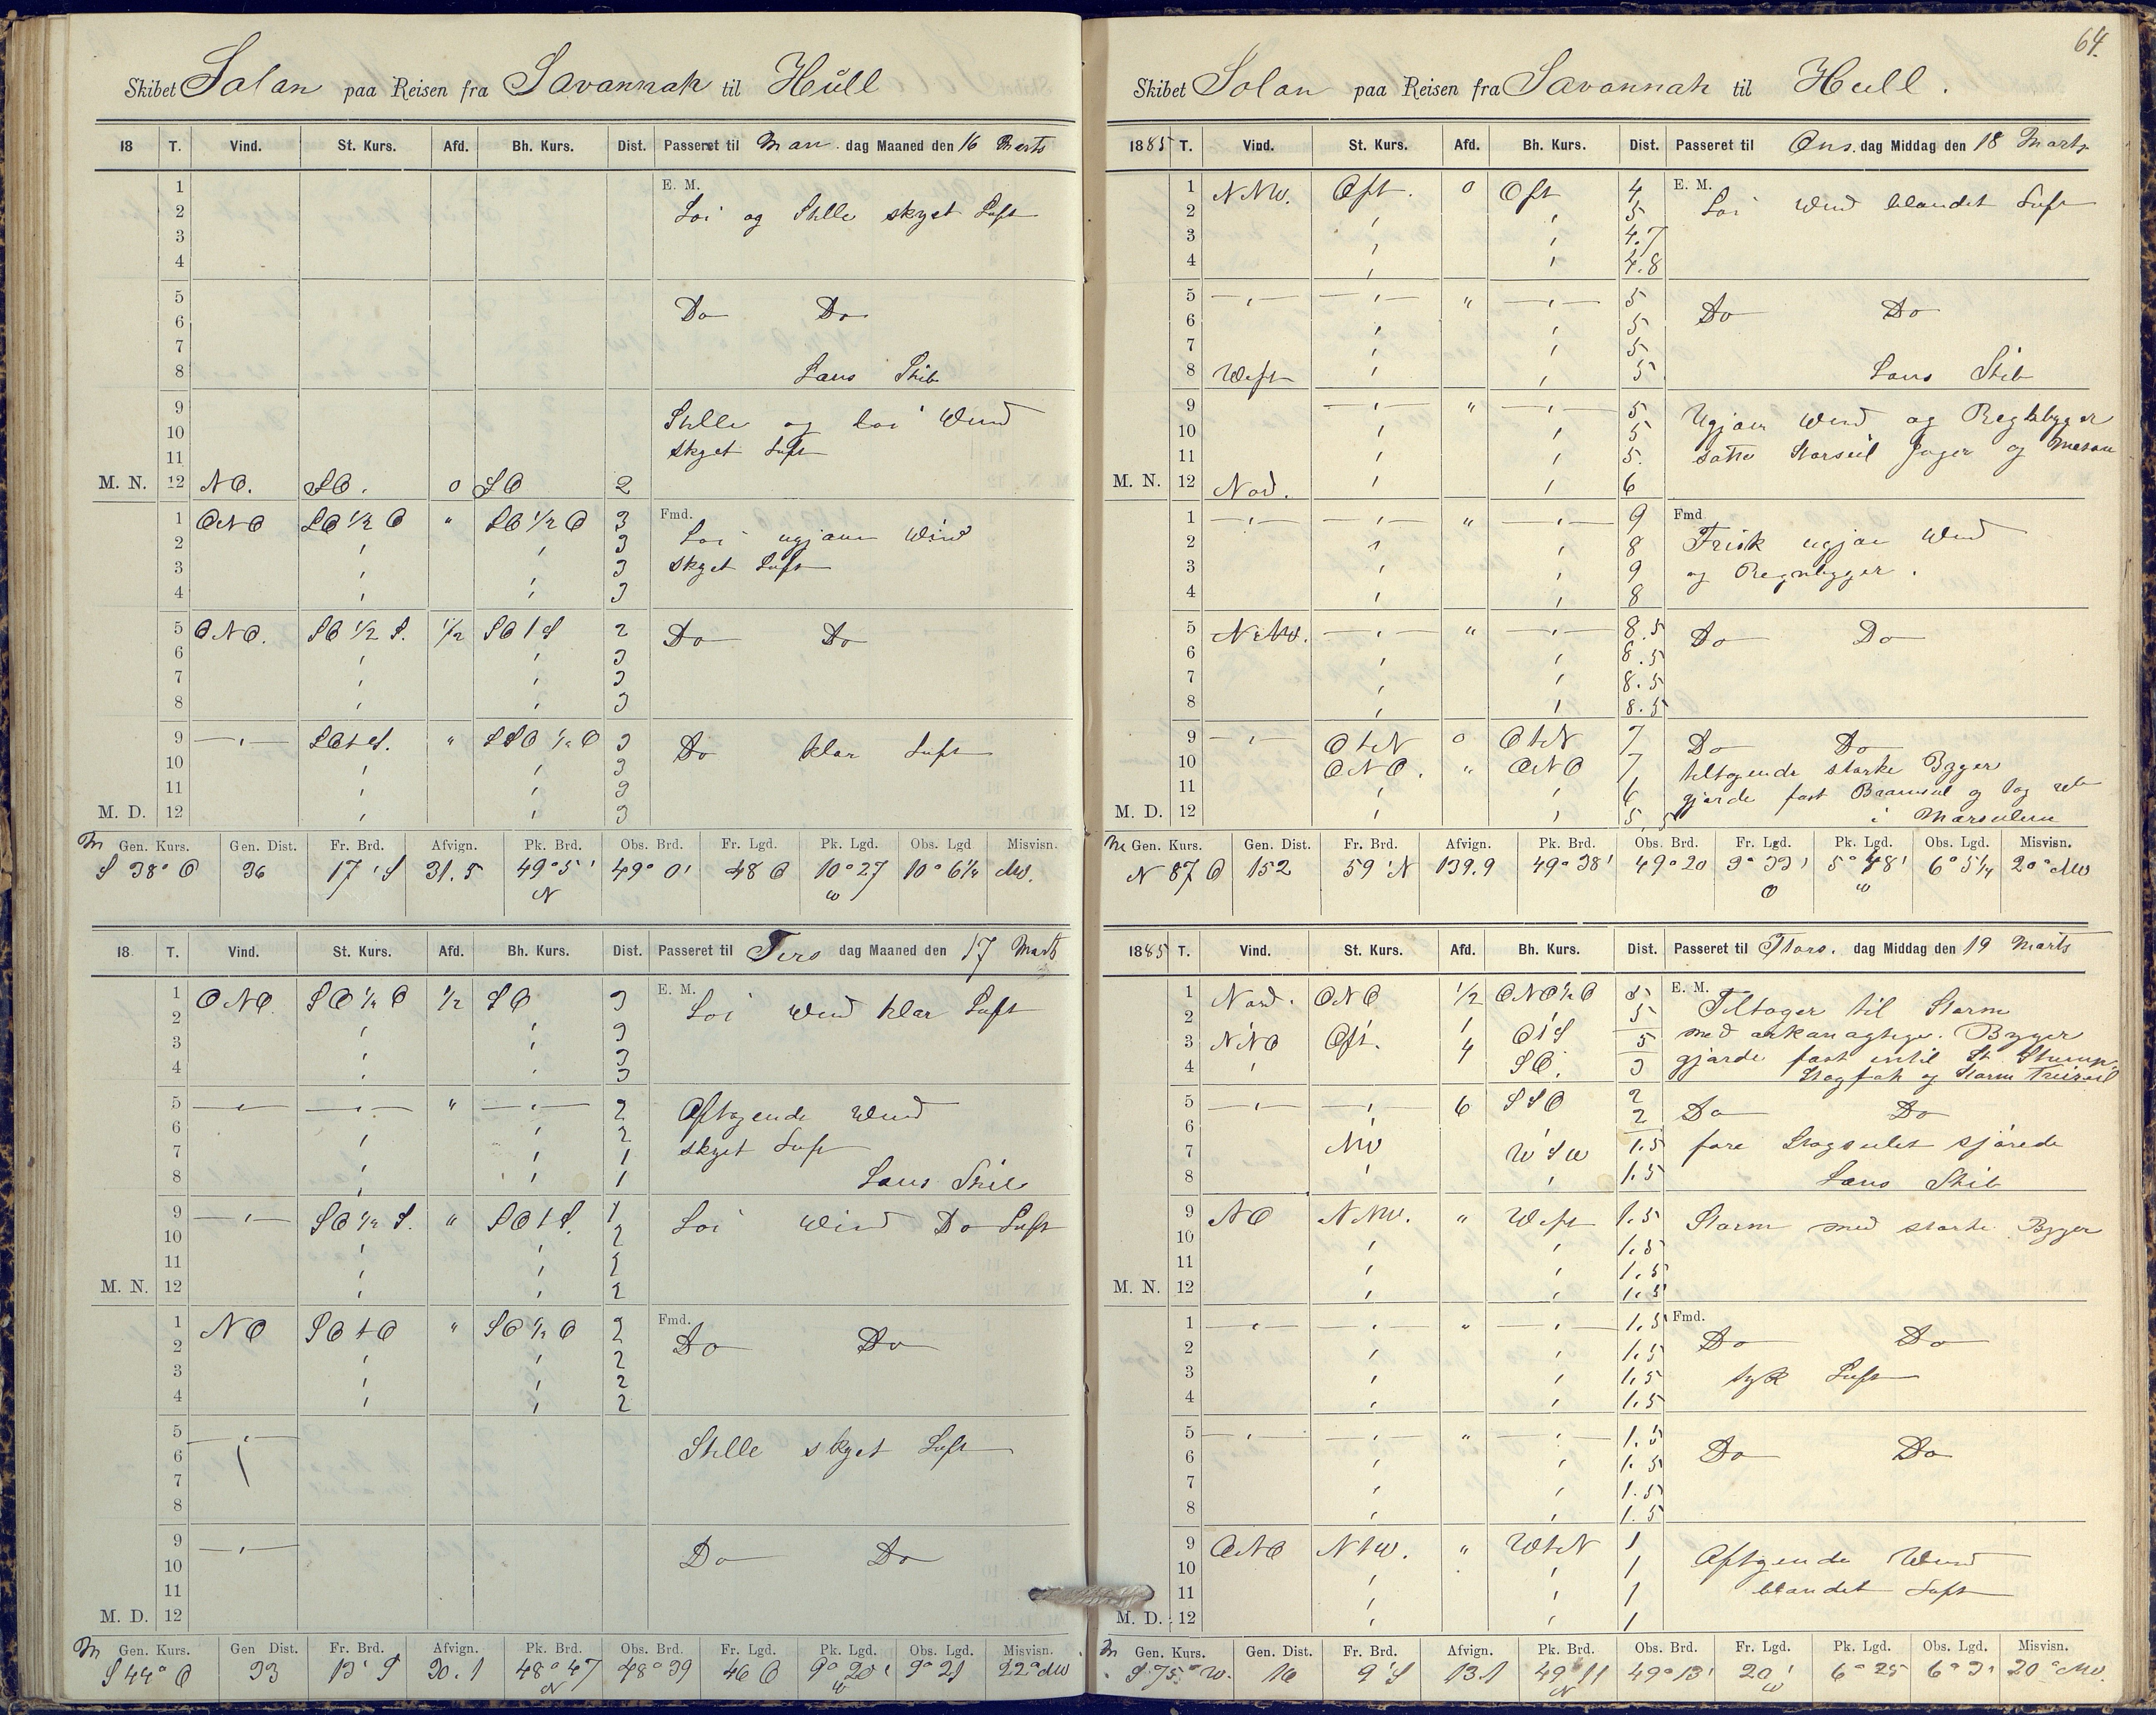 64.
Skibet Solan paa Reisen fra Savannah til Hull
18 T. Vind. St. Kurs. Afd. Bh. Kurs. Dist. Passeret til Man. dag Maaned den 16 Marts
1 E. M.
2 Loi og Stille skyet Luft
3
4
5 Do Do
6
7
8 Lens Skib
9 Stille og Loi Wind
10 skyet Luft
11
M. N. 12 NO. SO. 0 SO 2
1 ONO SO 1/2 O " SO 1/2 O 3 Fmd.
2 ' ' 3 Loi ugjævn Wind
3 ' ' 3 skyet Luft
4 ' ' 3
5 ONO. SO 1/2 S. 1/2 SO t S 2 Do Do
6 ' ' 3
7 ' ' 3
8 ' ' 3
9 —"— SO t S. " SSO 1/2 O 3 Do klar Luft
10 ' ' 3
11 ' ' 3
M. D. 12 ' ' 3
Gen. Kurs. Gen. Dist. Fr. Brd. Afvign. Pk. Brd. Obs. Brd. Fr. Lgd. Pk. Lgd. Obs. Lgd Misvisn.
S 38° O 36 17' S 31.5 49° 5' N 49° 0' 48 O 10° 27 W 10° 6 1/4 NW.
18 T. Vind. St. Kurs. Afd. Bh. Kurs. Dist. Passeret til Tirs dag Maaned den 17 Marts
1 ONO. SO 1/2 O 1/2 SO 3 E. M.
2 ' ' 3 Loi Wind klar Luft
3 ' ' 3
4 ' ' 3
5 —"— —"— " —"— 2 Aftagende Wind
6 ' ' 2 skyet Luft
7 ' ' 1
8 ' ' 1 Lens Skib
9 —"— SO 1/2 S. " SO t S. 1 Loi Wind Do Luft
10 ' ' 2
11 ' ' 2
M. N. 12 ' ' 2
1 NO SO t O " SO 1/2 O 2 Fmd.
2 ' ' 2 Do Do
3 ' ' 2
4 ' ' 2
5 —"—
6 Stille skyet Luft
7
8
9 —"—
10 Do Do
11
M. D. 12
Gen. Kurs. Gen Dist. Fr. Brd. Afvign. Pk. Brd. Obs. Brd. Fr. Lgd. Pk. Lgd. Obs. Lgd. Misvisn.
S 44° O 33 13' S 30.1 48° 47 N 48° 39 46 O 9° 20' W 9° 21 22° NW
Skibet Solan paa Reisen fra Savannah til Hull.
1885 T. Vind. St. Kurs. Afd. Bh. Kurs. Dist. Passeret til Ons. dag Middag den 18 Marts
1 NNW. Ost. 0 Ost 4 E. M.
2 ' ' 5 Loi Wind blandet Luft
3 ' ' 4.7
4 ' ' 4.8
5 —"— —"— " —"— 5
6 ' ' 5 Do Do
7 ' ' 5
8 West ' ' 5 Lens Skib
9 —"— " —"— 5 Ugjævn Wind og Regnbyger
10 ' ' 5 satte Storseil Jager og Mesan
11 ' ' 5.
M. N. 12 Nord. ' ' 6
1 —"— —"— " —"— 9 Fmd
2 ' ' 8 Frisk ugjæv Wind
3 ' ' 9 og Regnbyger.
4 ' ' 8
5 NNW. —"— " —"— 8.5 Do Do
6 ' ' 8.5
7 ' ' 8.5
8 ' ' 8.5
9 —"— O t N 0 O t N 7 Do Do
10 ONO. " ONO 7 tiltagende starke Byger
11 ' ' 6 gjorde fast Bramseil og tog reb
M. D. 12 ' ' 5.5 i Marseilene
Gen. Kurs. Gen. Dist. Fr. Brd. Afvign. Pk. Brd. Obs. Brd. Fr. Lgd. Pk. Lgd. Obs. Lgd. Misvisn.
N 87 O 152 59' N 139.9 49° 38' 49° 20 3° 33' O 5° 48' W 6° 5 1/4 20° NW
1885 T. Vind. St. Kurs. Afd. Bh. Kurs. Dist. Passeret til Tors. dag Middag den 19 Marts
1 Nord. ONO 1/2 ONO 1/2 O 5 E. M.
2 ' 5 Tiltager til Storm
3 NNO Ost. 1 O t S 5 med orkanagtige Byger
4 ' 4 SO. 3 gjorde fast intil St. Stump.
Stagfok og Storm Treiseil
5 —"— —"— 6 SSO 2
6 2 Do Do
7 NW WSW 1.5 fore Stagseilet sjørede
8 ' ' 1.5 Lens Skib
9 NO NNW. " West 1.5 Storm med starke Byger
10 ' ' 1.5
11 ' ' 1.5
M. N. 12 ' ' 1.5
1 —"— —"— " —"— 1.5 Fmd.
2 ' ' 1.5 Do Do
3 ' ' 1.5 tyk Luft
4 ' ' 1.5
5 —"— —"— " —"— 1.5
6 ' ' 1.5 Do Do
7 ' ' 1.5
8 ' ' 1.5
9 ONO N t W. " W t N 1
10 ' ' 1 Aftgende Wind
11 ' ' 1 blandet Luft
M. D. 12 ' ' 1
Gen. Kurs. Gen. Dist. Fr. Brd. Afvign. Pk. Brd. Obs. Brd. Fr. Lgd. Pk. Lgd. Obs. Lgd. Misvisn.
S 75° W. 16 9' S 13.1 49° 11 N 49° 13' 20' W 6° 25 6° 3' 20° NW.